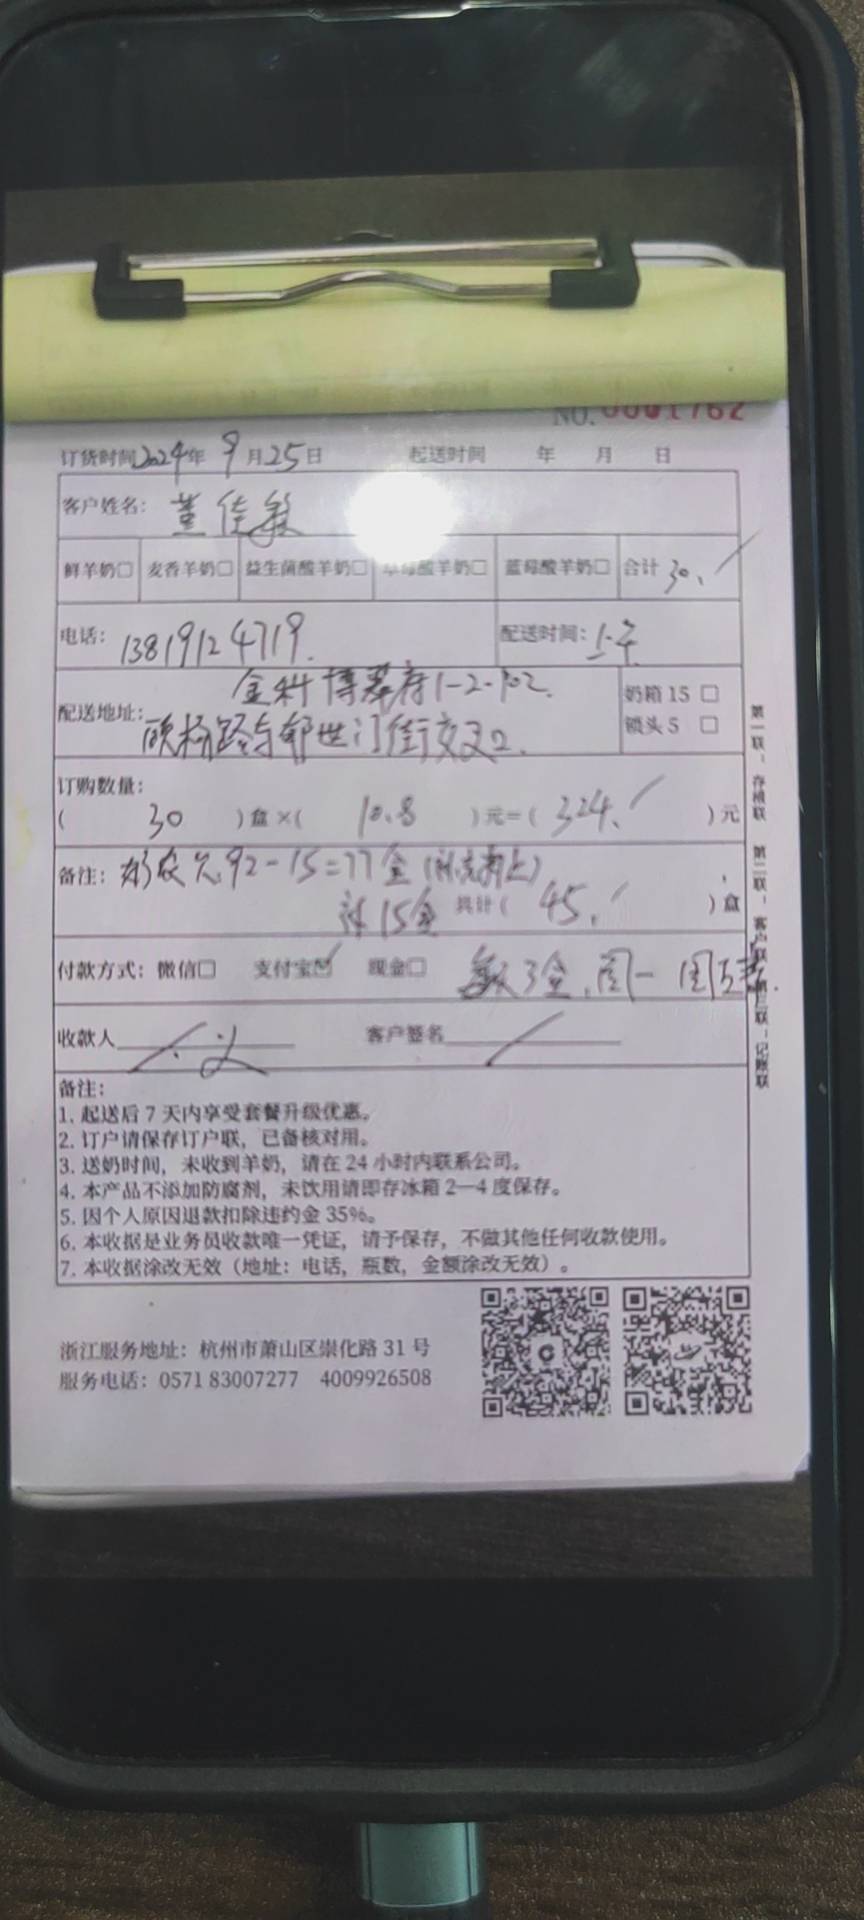 NO. 0001762
订货时间2024年 9月25日 起送时间 年 月 日
客户姓名：董佳敏
鲜羊奶□ 麦香羊奶□ 益生菌酸羊奶□ 酸羊奶□ 蓝莓酸羊奶□ 合计 30.
电话：13819124719. 配送时间：
配送地址：金科博翠府1-2-102. 奶箱 15 □
路与 世门街交叉口. 锁头 5 □
订购数量：
( 30 ) 盒 ×( 10.8 ) 元=( 324. ) 元
备注： 92-15=77盒
15盒 共计( 45. ) 盒
付款方式：微信□ 支付宝☑ 现金□ 3盒.周一 周五
收款人 客户签名
备注：
1. 起送后 7 天内享受套餐升级优惠。
2. 订户请保存订户联，已备核对用。
3. 送奶时间，未收到羊奶，请在 24 小时内联系公司。
4. 本产品不添加防腐剂，未饮用请即存冰箱 2—4 度保存。
5. 因个人原因退款扣除违约金 35%。
6. 本收据是业务员收款唯一凭证，请予保存，不做其他任何收款使用。
7. 本收据涂改无效（地址：电话，瓶数，金额涂改无效）。
第一联：存根联 第二联：客户联 第三联：记账联
浙江服务地址：杭州市萧山区崇化路 31 号
服务电话：0571 83007277 4009926508